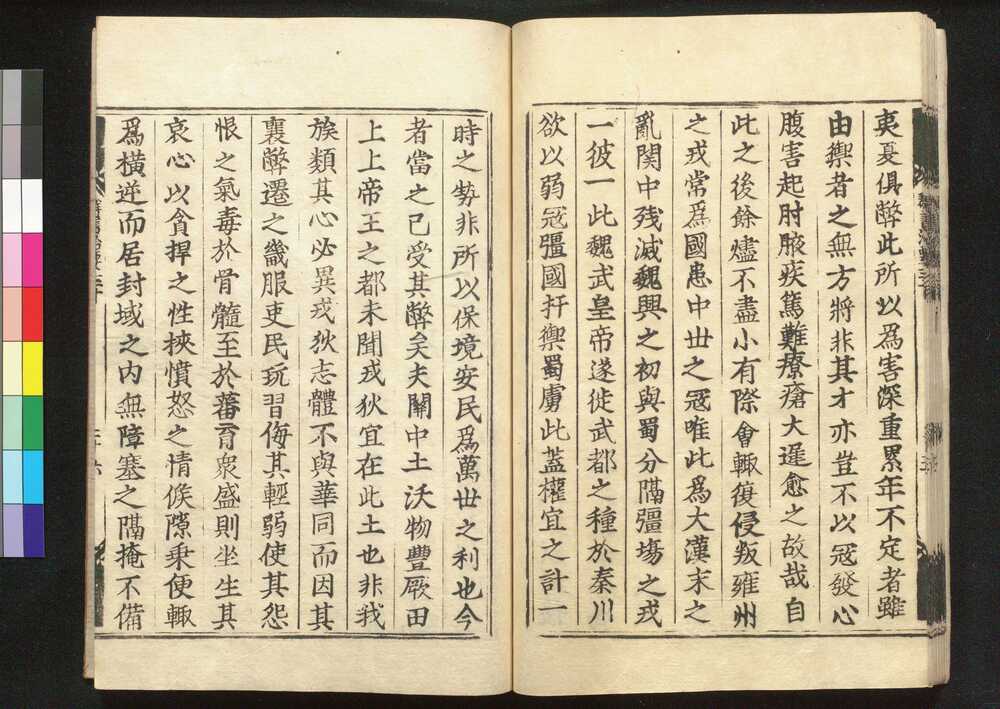 夷夏俱弊此所以爲害深重累年不定者雖
由禦者之無方將非其才亦豈不以冦發心
腹害起肘腋疾篤難療瘡大遲愈之故哉自
此之後餘燼不盡小有際會輙復侵叛雍州
之戎常爲國患中丗之冦唯此爲大漢末之
亂関中残滅魏興之初與蜀分隔彊埸之戎
一彼一此魏武皇帝遂徙武都之種於秦川
欲以弱冦彊國扞禦蜀虜此蓋權宜之計一
時之勢非所以保境安民爲萬世之利也今
者當之已受其弊矣夫關中土沃物豐厥田
上上帝王之都未聞戎狄宜在此土也非我
族類其心必異戎狄志體不與華同而因其
襄弊遷之畿服吏民玩習侮其輕弱使其怨
恨之氣毒於骨髓至於蕃育衆盛則坐生其
哀心以貪捍之性挾憤怒之情候隙乗便輙
爲横逆而居封域之内無障塞之隔掩不備